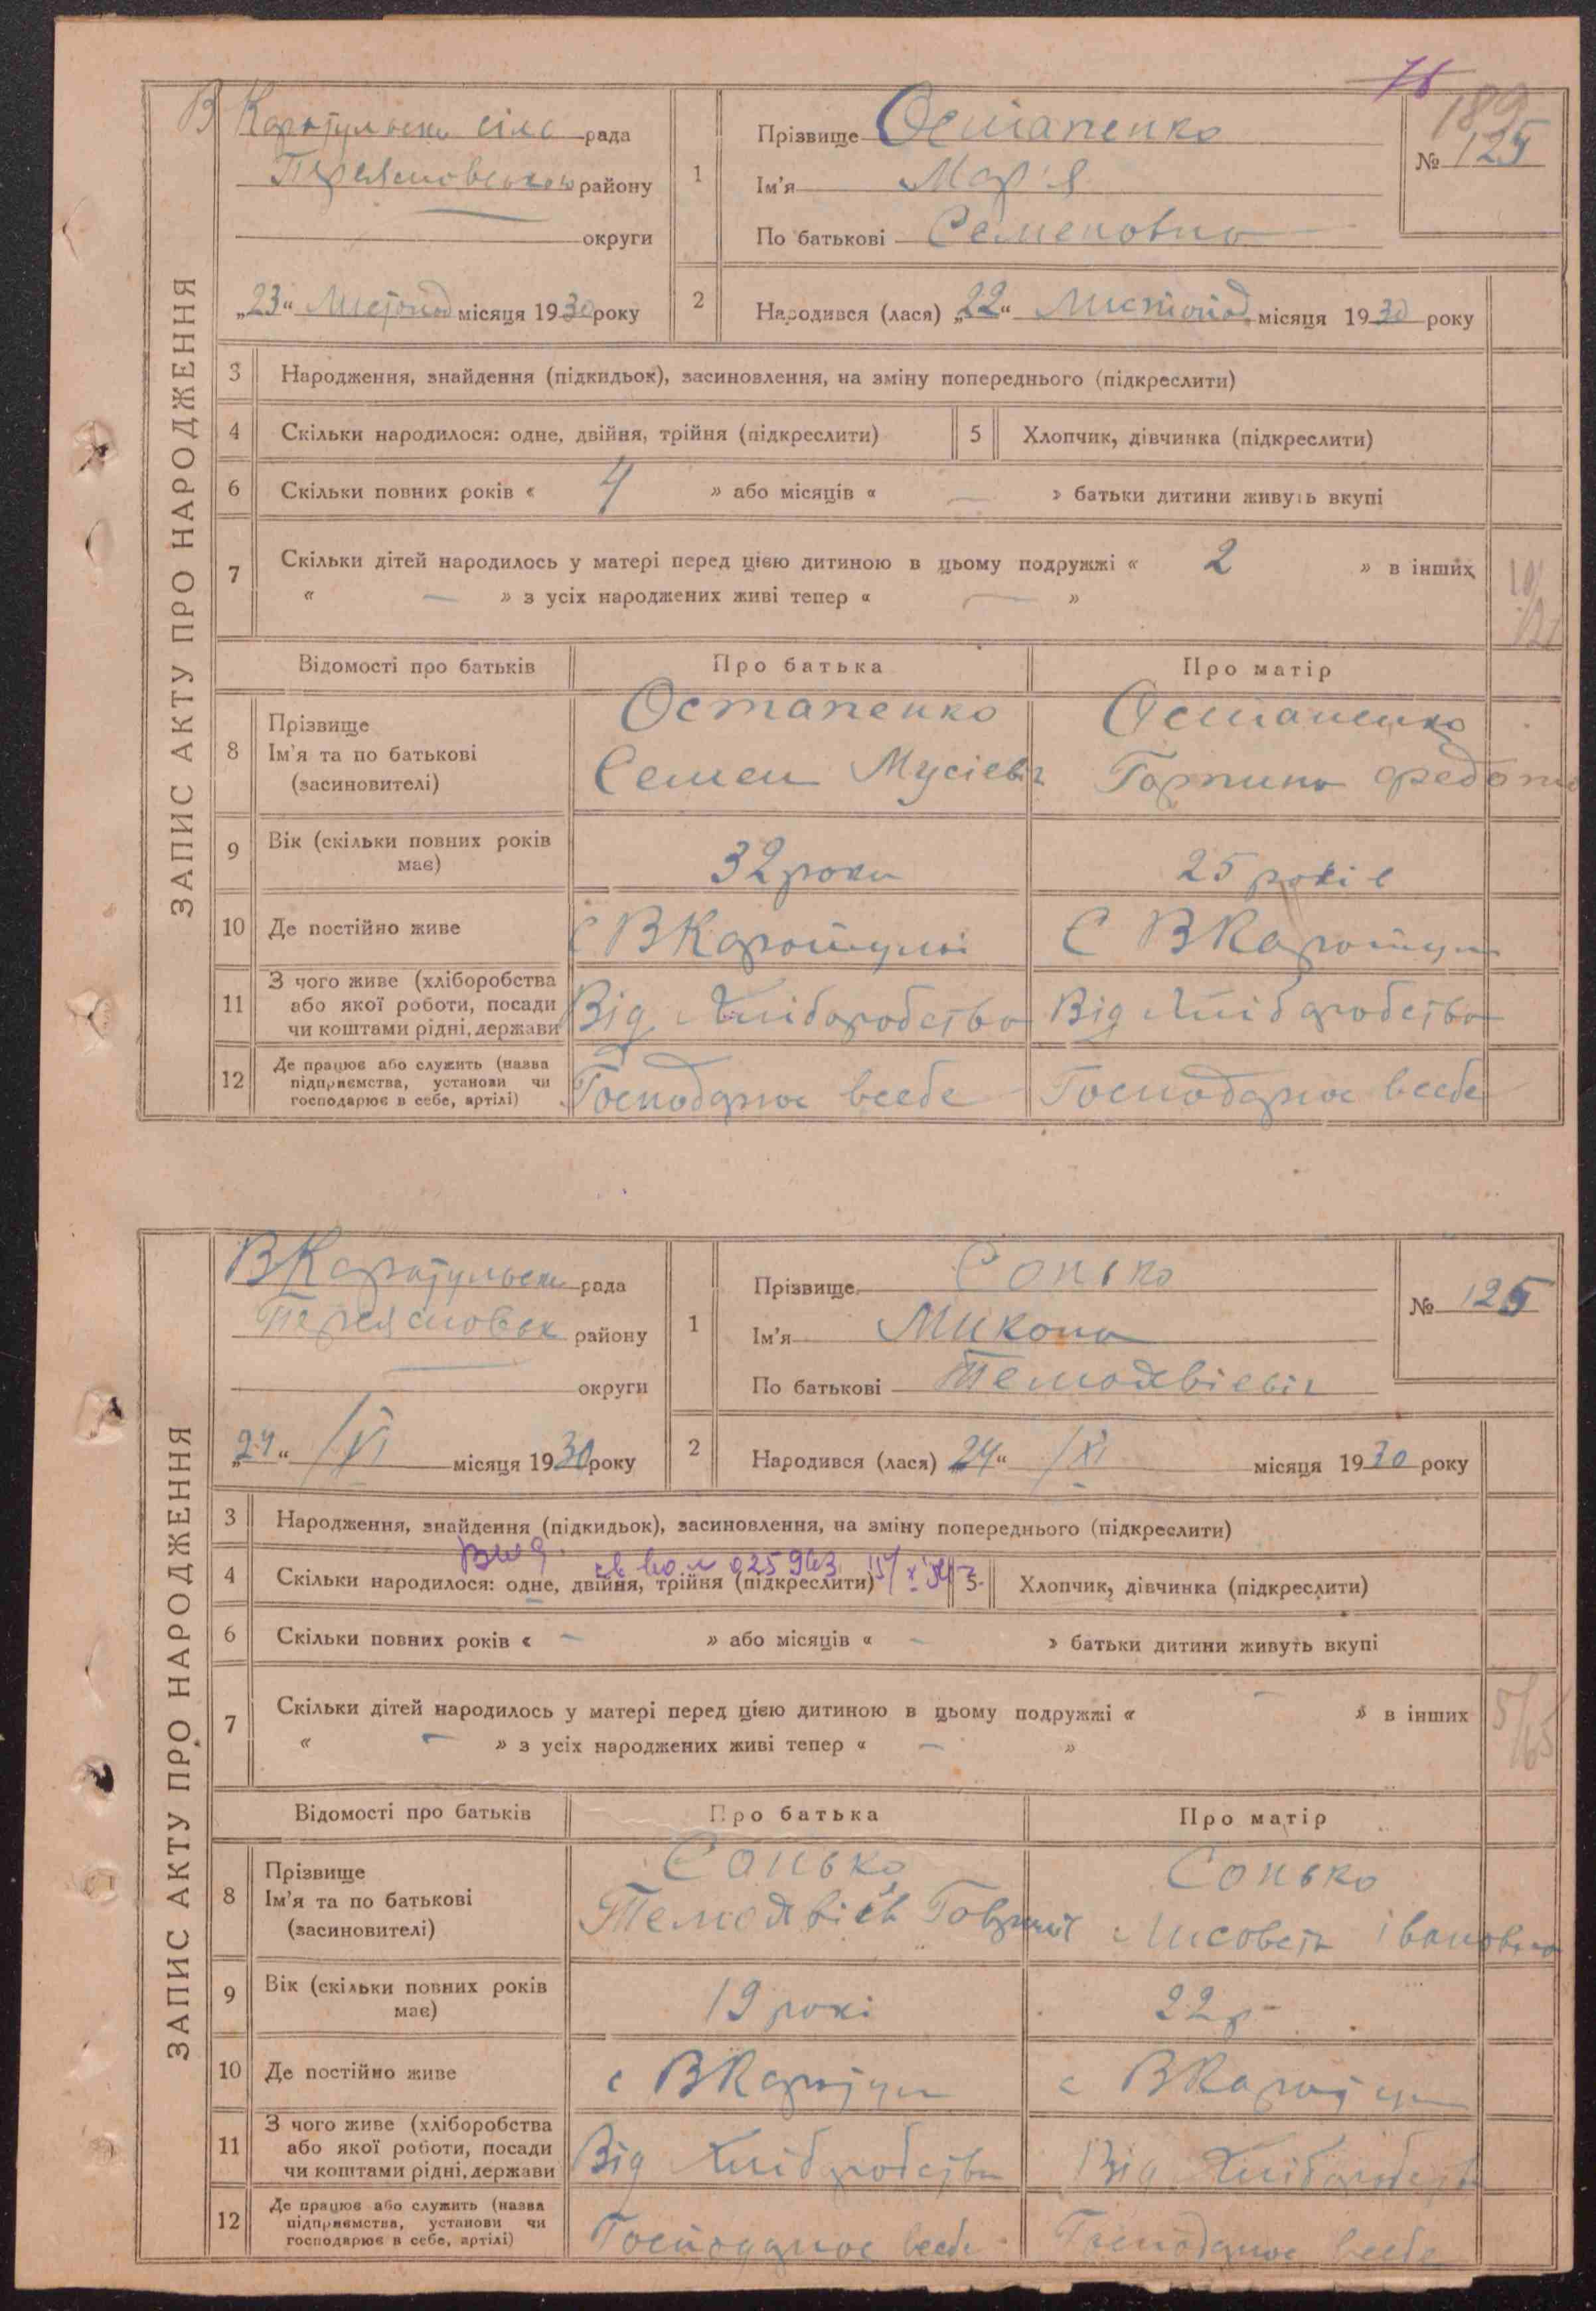 75
189
ЗАПИС АКТУ ПРО НАРОДЖЕННЯ
В Каратульська сіль рада
Переяславського району
округи
„23“ Листопад місяця 1930 року
1
Прізвище Остапенко
Ім'я Мар'я
По батькові Семеновна
№ 124
2
Народився (лася) „22“ Листопад місяця 1930 року
3 Народження, знайдення (підкидьок), засиновлення, на зміну попереднього (підкреслити)
4 Скільки народилося: одне, двійня, трійня (підкреслити) 5 Хлопчик, дівчинка (підкреслити)
6 Скільки повних років « 4 » або місяців « — » батьки дитини живуть вкупі
7 Скільки дітей народилось у матері перед цією дитиною в цьому подружжі « 2 » в інших
« — » з усіх народжених живі тепер « — »
Відомості про батьків Про батька Про матір
8 Прізвище
Ім'я та по батькові
(засиновителі)
Остапенко
Семен Мусієвіч
Остапенко
Горпина Федотю
9 Вік (скільки повних років має) 32 роки 25 років
10 Де постійно живе С ВКаратулі С ВКаратул
11 З чого живе (хліборобства
або якої роботи, посади
чи коштами рідні, держави
Від Хліборобства Від Хліборобства
12 Де працює або служить (назва
підприємства, установи чи
господарює в себе, артілі)
Господарює всебе Господарює всебе
ЗАПИС АКТУ ПРО НАРОДЖЕННЯ
ВКаратульськ рада
Переяславськ району
округи
„24“ /XI місяця 1930 року
1
Прізвище Сонько
Ім'я Микола
По батькові
№ 125
2
Народився (лася) „24“ /XI місяця 1930 року
3 Народження, знайдення (підкидьок), засиновлення, на зміну попереднього (підкреслити)
4 Скільки народилося: одне, двійня, трійня (підкреслити) 5 Хлопчик, дівчинка (підкреслити)
6 Скільки повних років « — » або місяців « — » батьки дитини живуть вкупі
7 Скільки дітей народилось у матері перед цією дитиною в цьому подружжі « — » в інших
« — » з усіх народжених живі тепер « — »
5/65
Відомості про батьків Про батька Про матір
8 Прізвище
Ім'я та по батькові
(засиновителі)
Сонько
Сонько
Лисовета Івановна
9 Вік (скільки повних років має) 19 рокі 22 р
10 Де постійно живе с ВКаратул с ВКаратул
11 З чого живе (хліборобства
або якої роботи, посади
чи коштами рідні, держави
Від Хліборобства Від Хліборобств
12 Де працює або служить (назва
підприємства, установи чи
господарює в себе, артілі)
Господарює всебе Господарює всебе